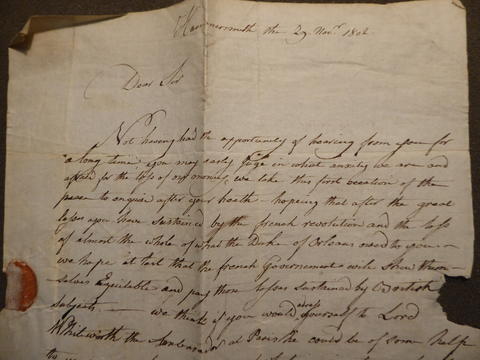 Hammersmith the 29 Novr. 1802
Dear Sir
Not having had the opportunity of hearing from you for
a long time you may easly Juge in what anxiety we are and
affraid for the loss of our monnies, we take this first occation of the
peace to enquire after your health - hopeing that after the great
losses you have sustained by the french revolution and the loss
of almost the whole of what the Duke of Orleans owed to you -
we hope at last that the french Governement will Shew them-
-selves Equitable and pay those losses sustained by British
subjects - we think if you would adress yourself to Lord
Whitworth the Ambassador at Paris he could be of some help